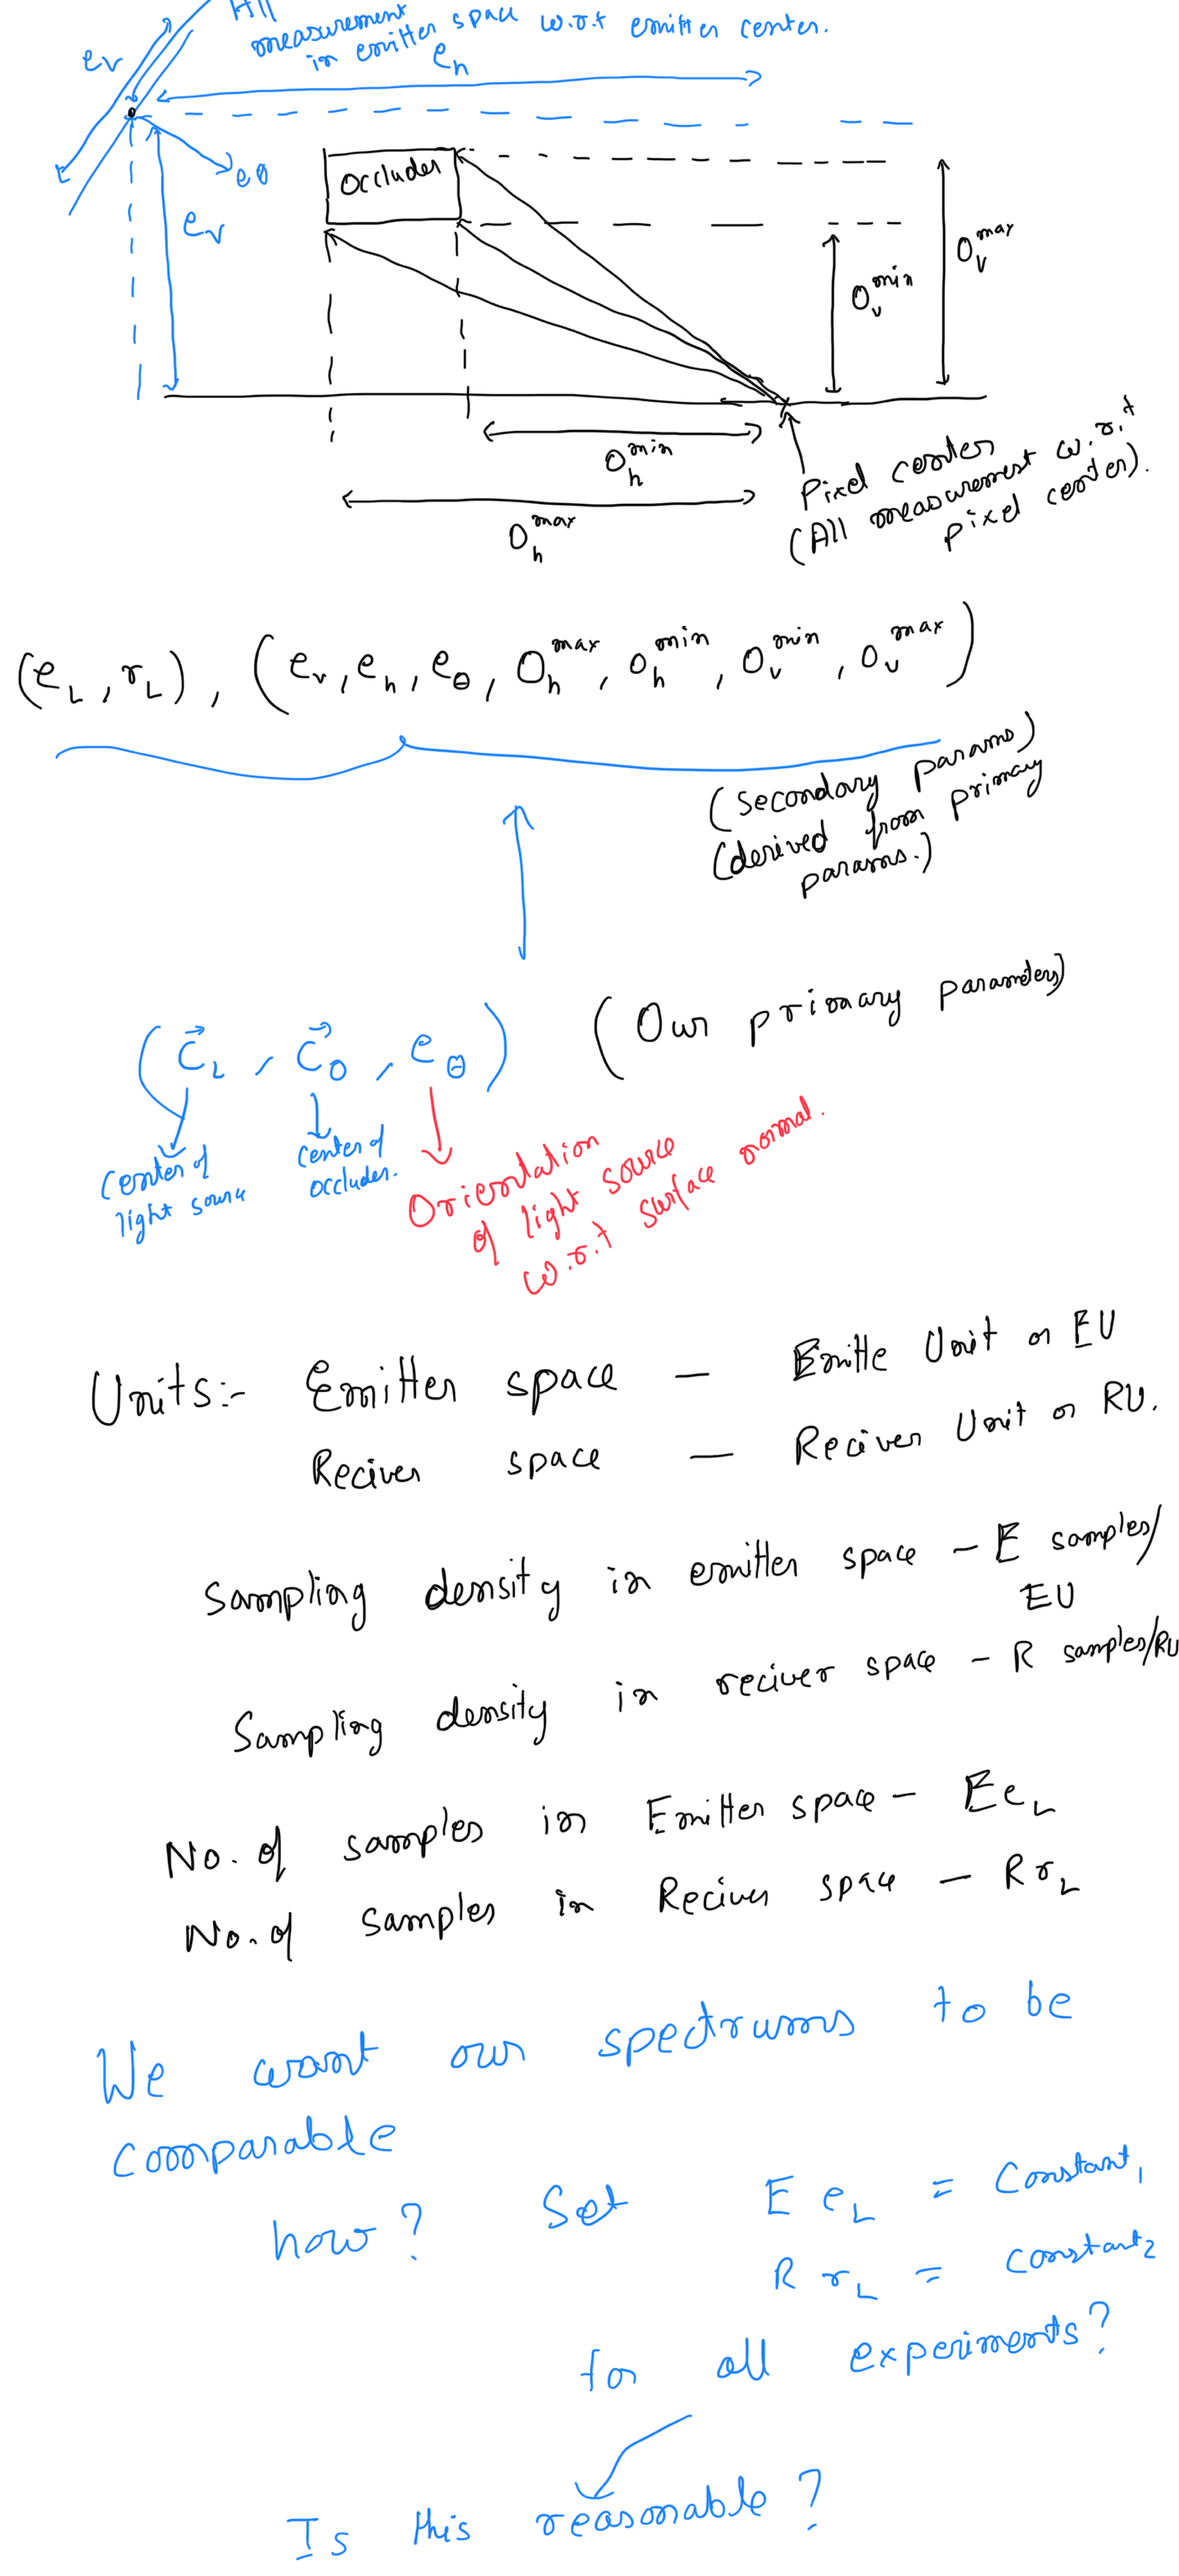 All
measurement
in emitter space w.r.t emitter center.
e_h
e_v
e_θ
e_v
Occluder
O_v^max
O_v^min
O_h^min
O_h^max
Pixel center
(All measurement w.r.t
pixel center).
(e_L, r_L), (e_v, e_h, e_θ, O_h^max, O_h^min, O_v^min, O_v^max)
(Secondary params)
(derived from primary
params.)
(C⃗_L, C⃗_O, e_θ) (Our primary parameters)
center of
light source
center of
occluder.
Orientation
of light source
w.r.t surface normal.
Units:- Emitter space — Emitte Unit or EU
Reciver space — Reciver Unit or RU.
Sampling density in emitter space – E samples/
EU
Sampling density in reciver space – R samples/RU
No. of samples in Emitter space – E e_L
No. of samples in Reciver space – R r_L
We want our spectrums to be
comparable
how? Set E e_L = Constant_1
R r_L = constant_2
for all experiments?
Is this reasonable?